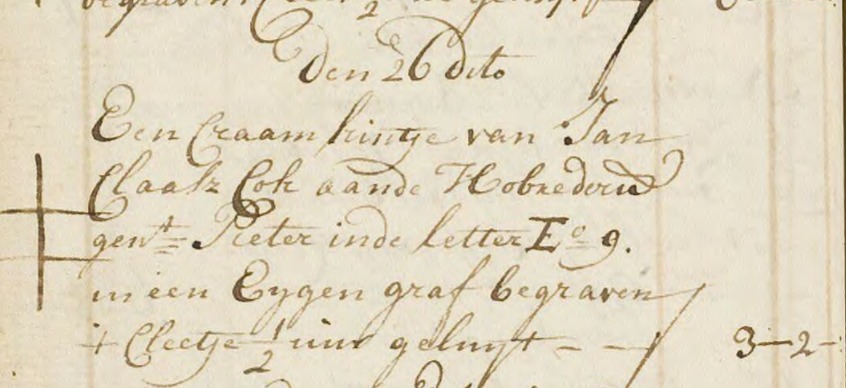 begraven
Den 26 dito
Een Craam kintje van Jan
Claasz Cok aande
gent Pieter inde letter E o 9.
in een Eygen graf begraven
+ Cleetje 1/2 uur geluyt - - 3-2-